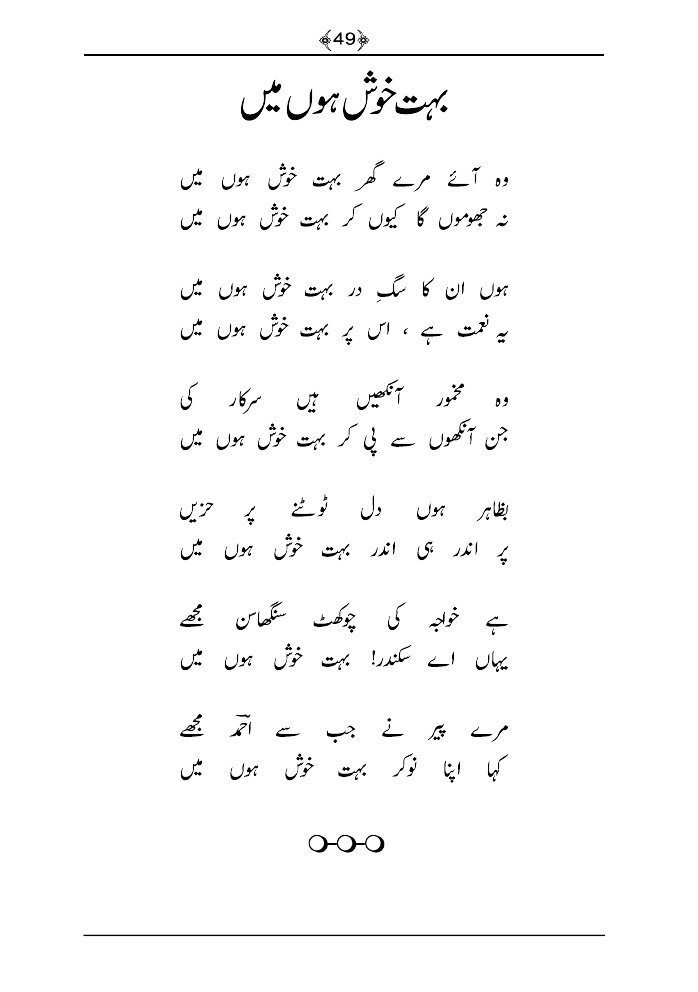 49
بہت خوش ہوں میں
وہ آئے مرے گھر بہت خوش ہوں میں
نہ جھوموں گا کیوں کر بہت خوش ہوں میں
ہوں ان کا سگِ در بہت خوش ہوں میں
یہ نعمت ہے ، اس پر بہت خوش ہوں میں
وہ مخمور آنکھیں ہیں سرکار کی
جن آنکھوں سے پی کر بہت خوش ہوں میں
بظاہر ہوں دل ٹوٹنے پر حزیں
پر اندر ہی اندر بہت خوش ہوں میں
ہے خواجہ کی چوکھٹ سنگھاسن مجھے
یہاں اے سکندر! بہت خوش ہوں میں
مرے پیر نے جب سے احمدؔ مجھے
کہا اپنا نوکر بہت خوش ہوں میں